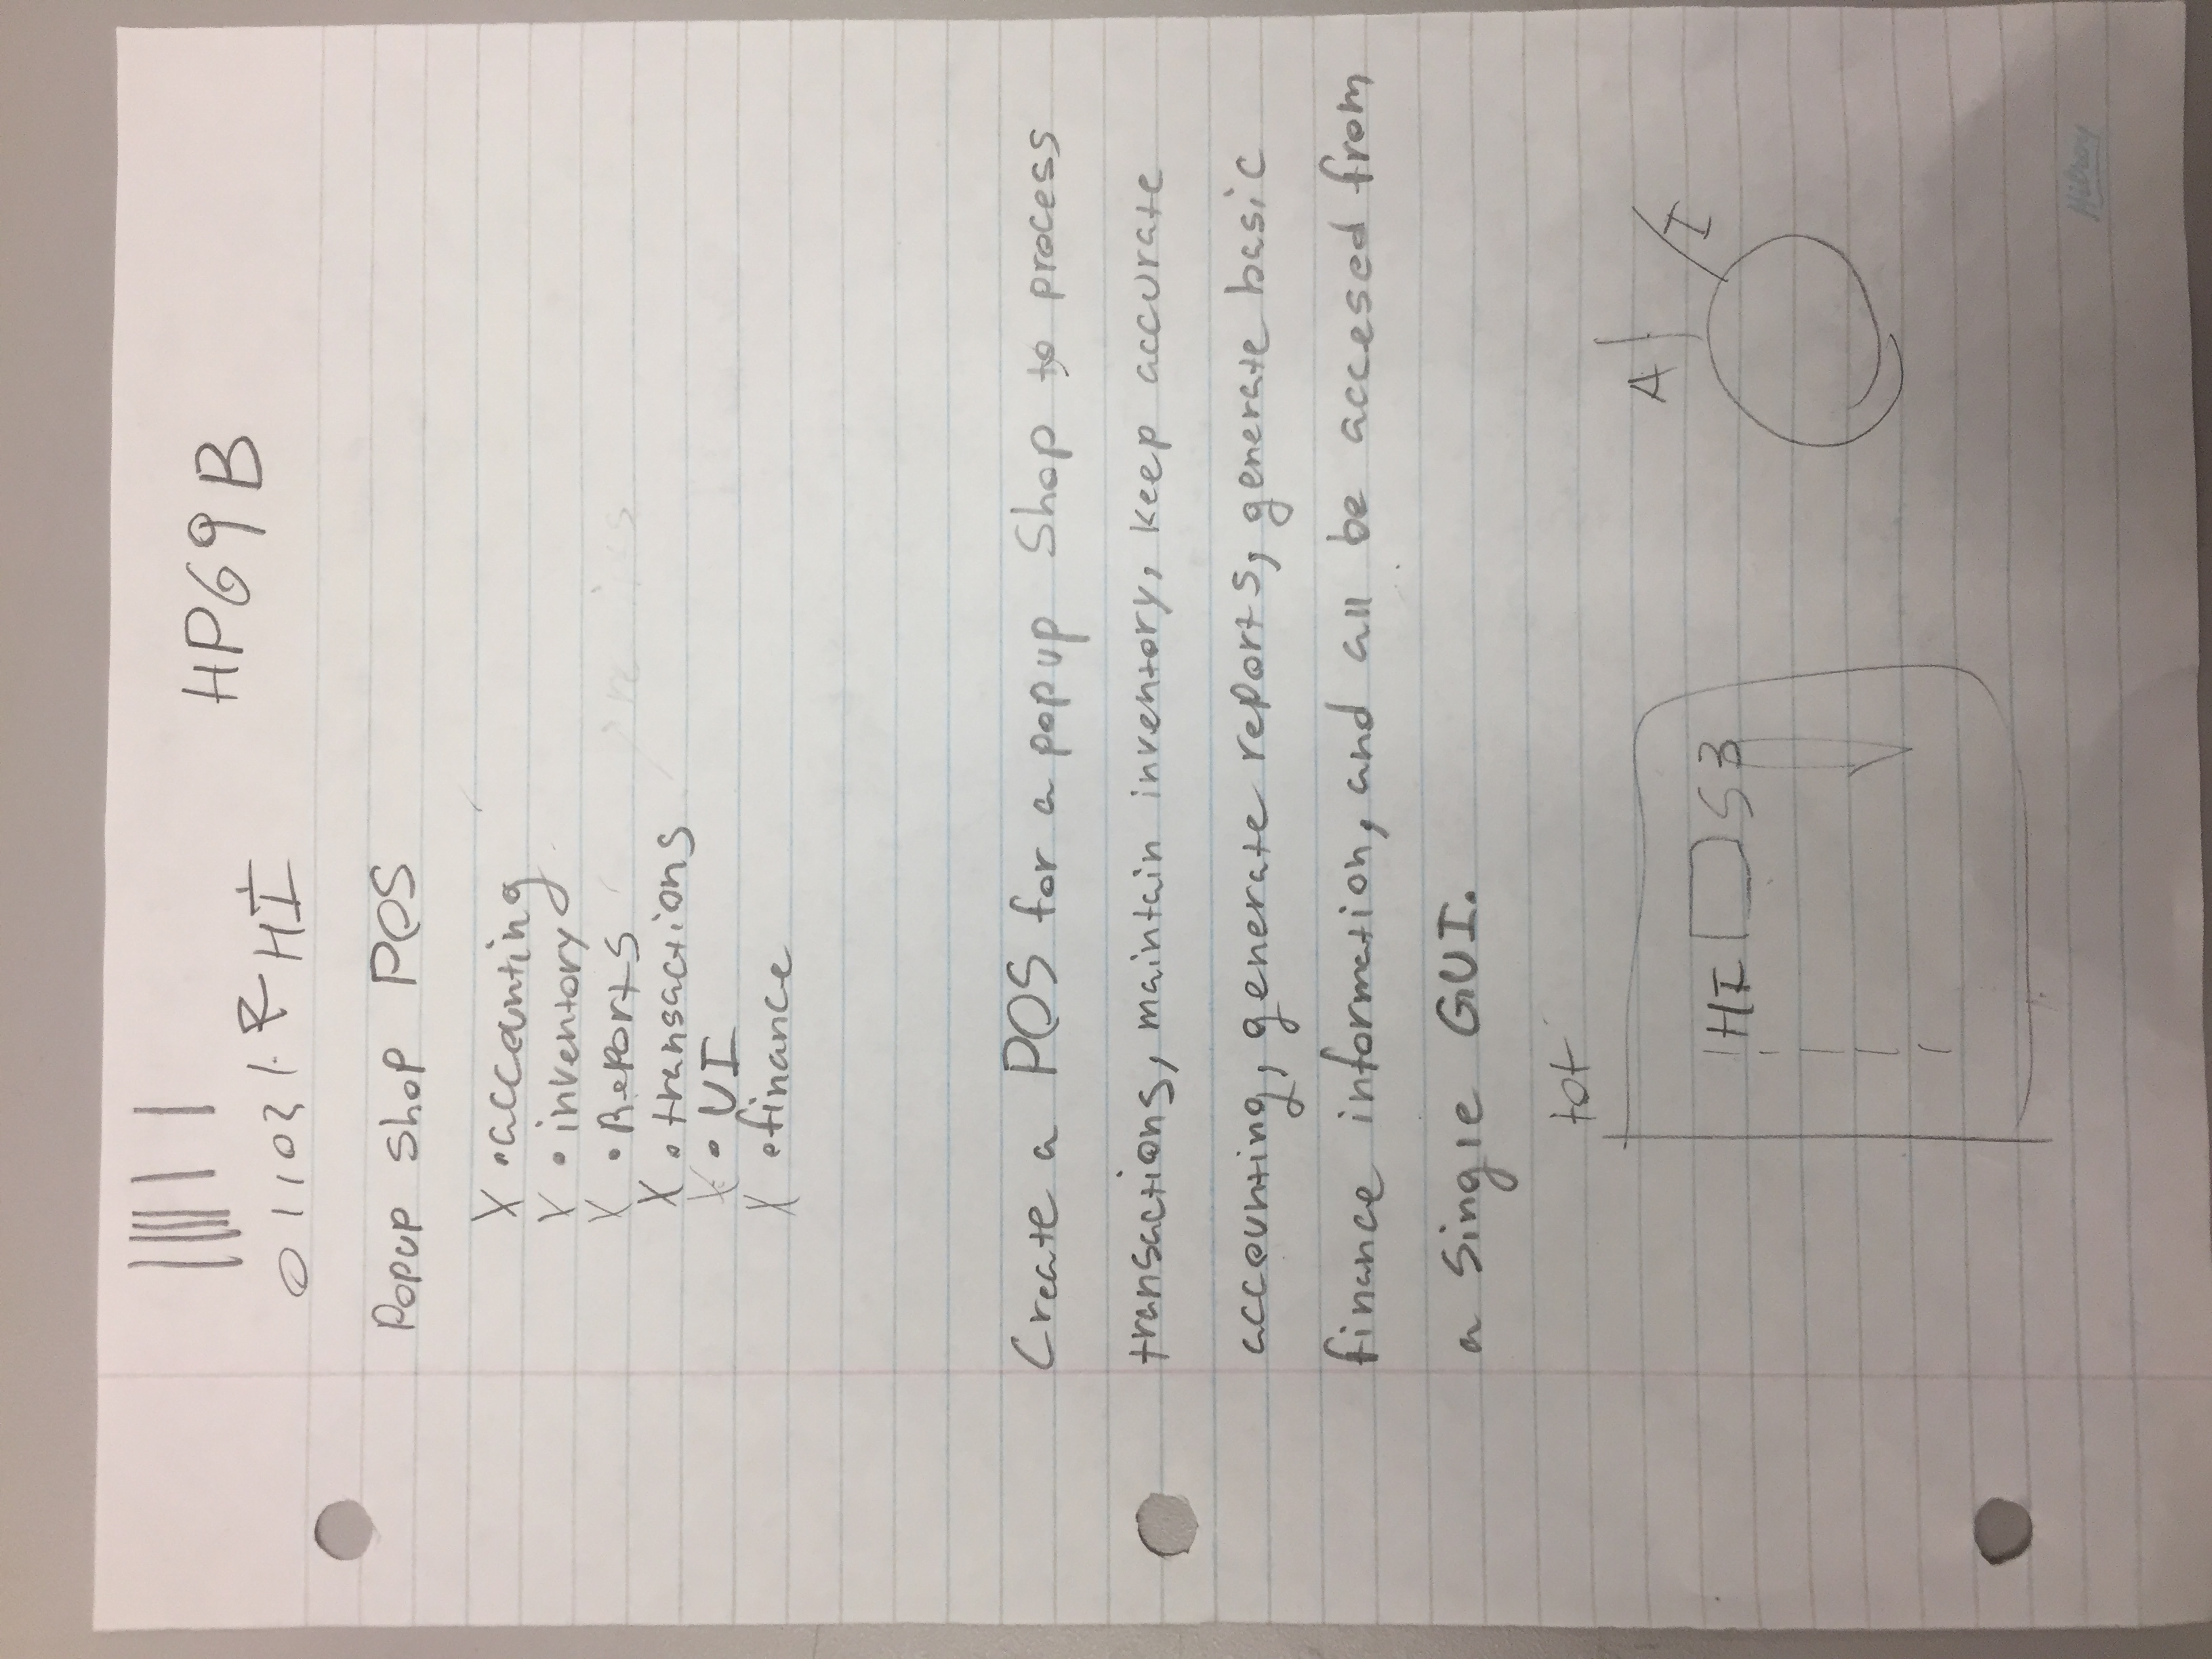 HP69B
HI
Popup Shop POS
X • accounting
X • inventory
X • Reports
X • transactions
X • UI
X • finance
Create a POS for a popup Shop to process
transactions, maintain inventory, keep accurate
accounting, generate reports, generate basic
finance information, and all be accesed from
a single GUI.
tot
A I
HI S3
Hilroy